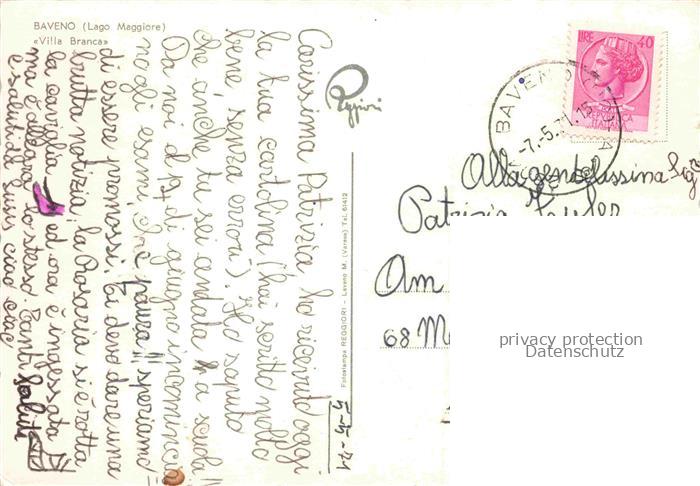 BAVENO (Lago Maggiore)
«Villa Branca»
Carissima Patrizia ho ricevuto oggi
la tua cartolina (hai scritto molto
bene senza errori). Ho saputo
che anche tu sei andata a scuola!!
Da noi il 14 di giugno incomincia
no gli esami, che paura!! speriamo
di essere promossi. Ti devo dare una
brutta notizia, la Rosaria si è rotta
la caviglia ed ora è ingessata
ma è allegra lo stesso. Tanti saluti
e saluti da Susi, ciao ciao
5-5-71
Reggiori
Fotostampa REGGIORI - Laveno M. (Varese) Tel. 61412
LIRE 40
REPUBBLICA
ITALIANA
BAVENO
-7.-5.71.15
Alla gentilissima Sig
Patrizia
Am
68 M
privacy protection
Datenschutz